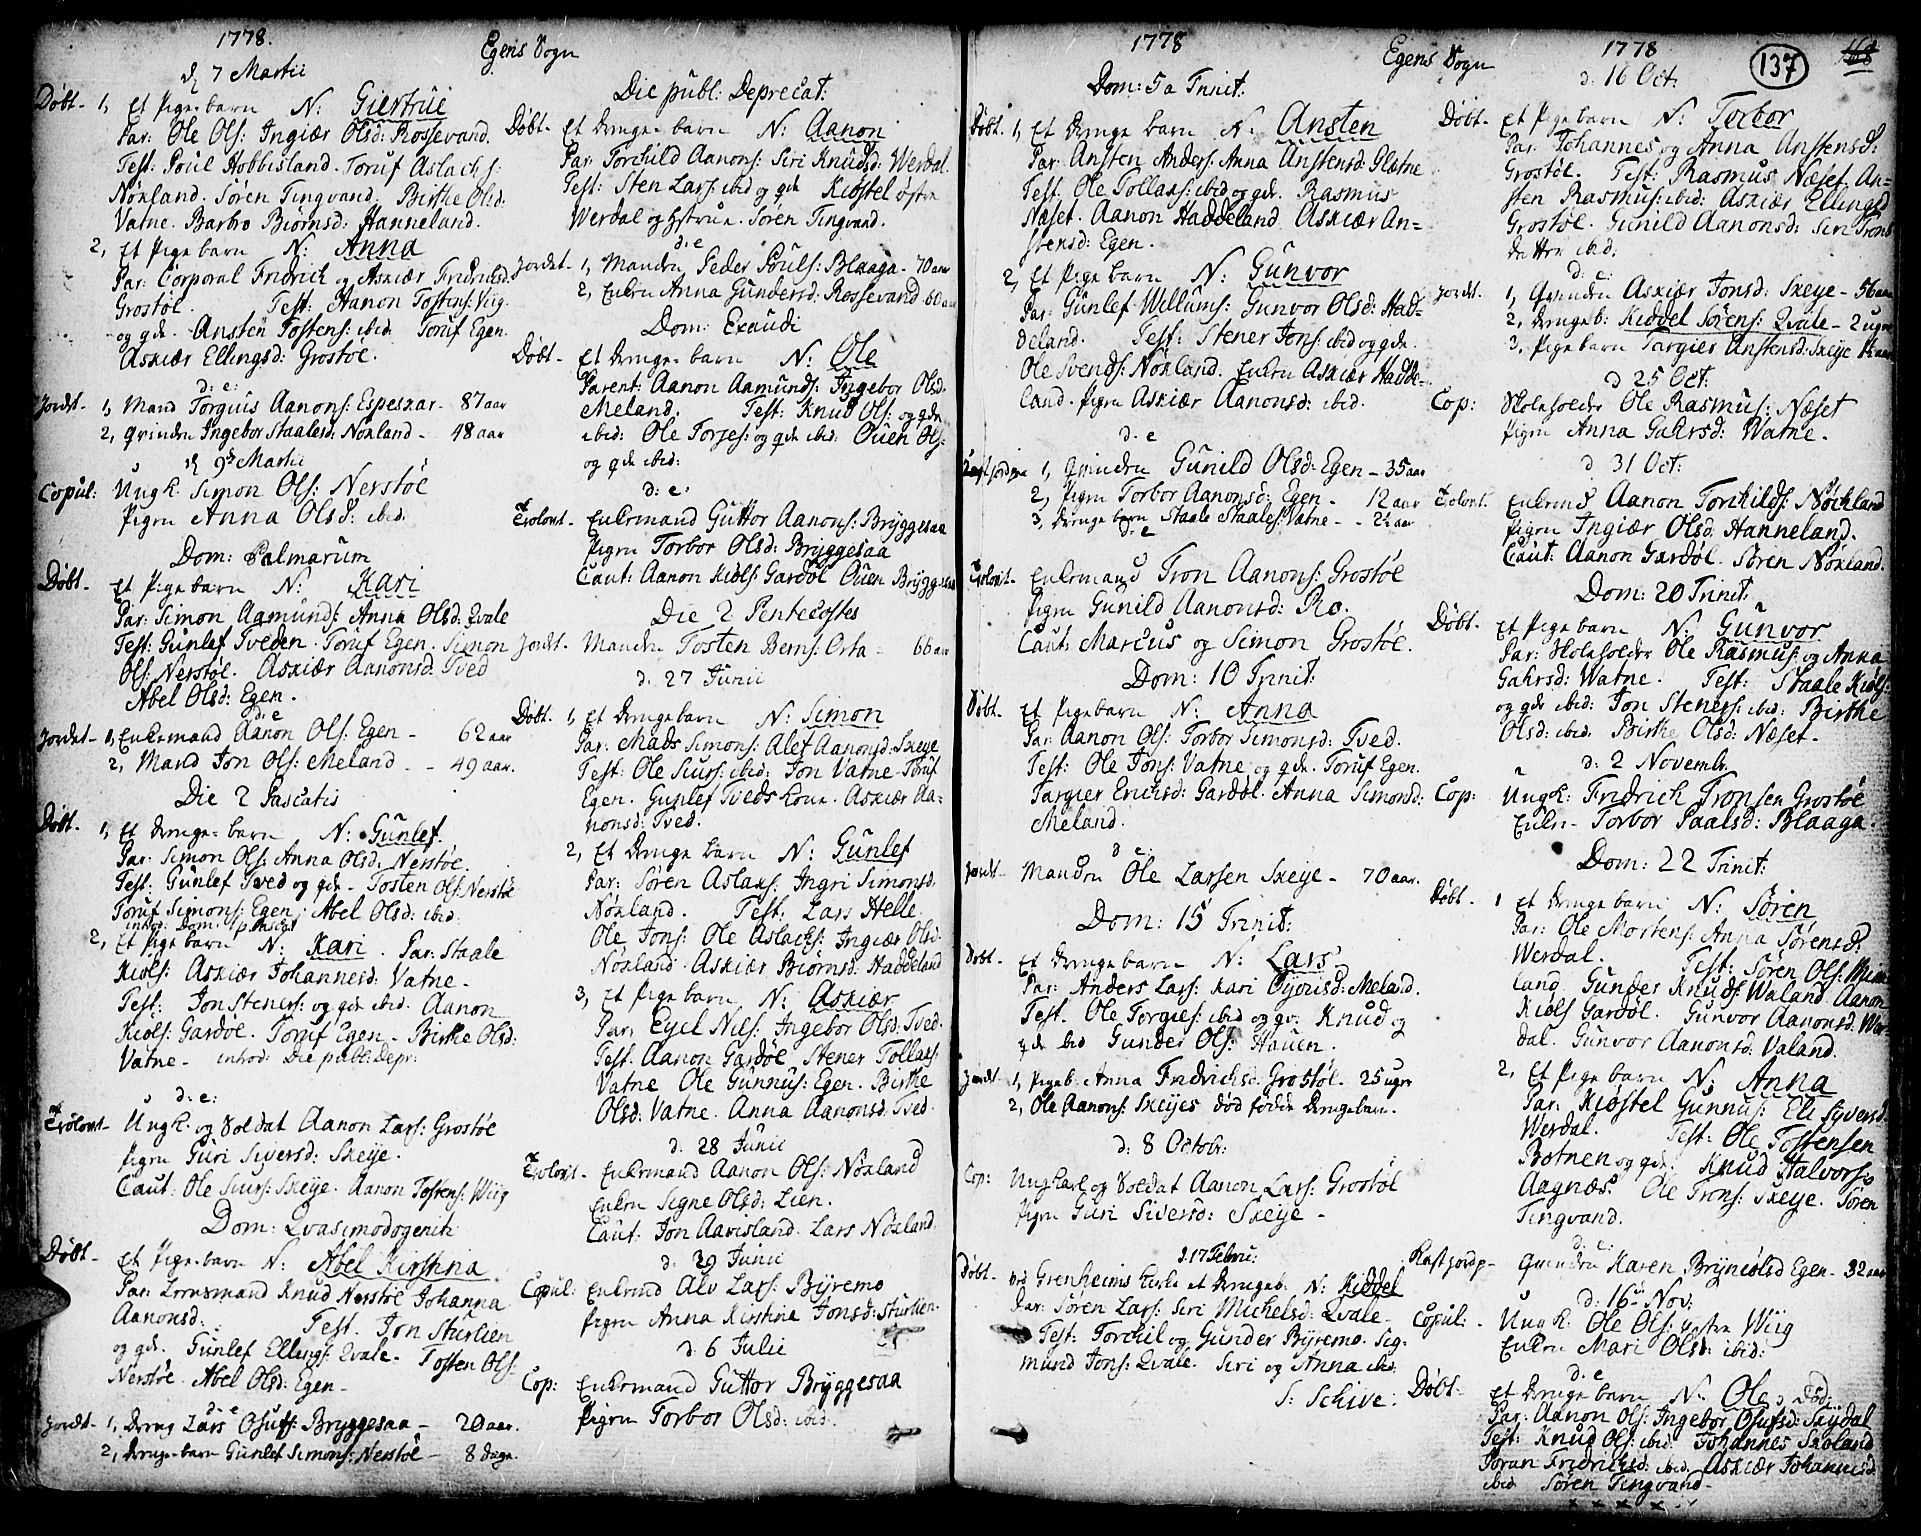 1778. Egens Sogn
d 7 Martii
Døbt - 1, Et Pige-barn N: Giertrue
Par: Ole Ols: Ingiær Olsd: Rossevand.
Test: Poul Hobbisland. Toruf Aslachs:
Noxland. Søren Tingvand. Birthe Olsd:
Vatne. Barbro Biørnsd: Hanneland.
2, Et Pige barn N: Anna
Par: Corporal Fridrich og Askiær Fridrichsd:
Grostøl. Test: Aanon Tostens: Viig
og gde. Ansten Tostens: ibid Toruf Egen.
Askiær Ellingsd: Grostøl.
d: e:
Jordet - 1, Mand Torguis Aanons: Espeskar - 87 aar
2, Qvinden Ingebor Staalesd: Noxland - 48 aar
d 9de Martii
Copul: Ungk: Simon Ols: Nerstøl
Pigen Anna Olsd: ibid:
Dom: Palmarum
Døbt - Et Pige barn N: Kari
Par: Simon Aamunds: Anna Olsd: Qvale
Test: Gunlef Tveden. Toruf Egen. Simon
Ols: Nerstøl. Askiær Aanonsd: Tved
Abel Olsd: Egen.
d: e
Jordet - 1, Enkemand Aanon Ols: Egen - 62 aar
2, Mand Jon Ols: Meland - - 49 aar.
Die 2 Pascatis
Døbt. 1, Et Drenge-barn N: Gunlef
Par: Simon Ols: Anna Olsd: Nerstøl.
Test: Gunlef Tved og gde - Tosten Ols: Nerstøl
Toruf Simons: Egen. Abel Olsd: ibid:
introd: Dom: 1 p: Pasch
2, Et Pige barn N: Kari. Par: Staale
Kiøls: Askiær Johannesd: Vatne.
Test: Jon Steners: og gde ibid. Aanon
Kiøls: Gardøl. Toruf Egen - Birthe Olsd:
Vatne - introd: Die publ: Depr:
d: e:
Trolovt - Ungk. og Soldat Aanon Lars: Grostøl
Pigen Guri Siversd: Skeye.
Caut: Ole Siurs: Skeye. Aanon Tostens: Wiig
Dom: Qvasimodogenit:
Døbt - Et Pige-barn N: Abel Kirstina
Par: Lensmand Knud Nerstøl Johanna
Aanonsd: Test. Jon Stürlien
og gde. Gunlef Ellings: Qvale. Tosten Ols:
Nerstøl. Abel Olsd: Egen -
d: e
Jordet - 1, Dreng Lars Osufs: Bryggesaa - 20 aar.
2, Drenge-barn Gunlef Simons: Nerstøl - 8 dage.
Die publ: Deprecat:
Døbt. Et Drenge-barn N: Aanon
Par: Torchild Aanons: Siri Knudsd: Werdal.
Test: Sten Lars: ibid og gde Kiøstel østre
Werdal og hstrue. Søren Tingvand.
d: e
Jordet - 1, Manden Peder Pouls: Blaaga - 70 aar
2, Enken Anna Gundersd: Rossevand 60 aar
Dom: Exaudi
Døbt - Et Drenge-barn N: Ole
Parent: Aanon Aamunds: Ingebor Olsd:
Meland. Test: Knud Ols: og gde
ibid: Ole Torjes: og gde ibid: Ouen Ols:
og gde ibid:
d: e:
Trolovt - Enkemand Guttor Aanons: Bryggesaa
Pigen Torbor Olsd: Bryggesaa
Caut: Aanon Kiøls: Gardøl Ouen Bryggesaa
Die 2 Pentecostes
Jordt. Manden Tosten Bernt: Orta - 66 aar
d: 27 Junii
Døbt. 1, Et Drenge barn N: Simon
Par: Mads Simons: Alet Aanonsd: Skeye
Test: Ole Siurs: ibid: Jon Vatne. Toruf
Egen. Gunlef Tveds kone. Askiær Aa-
nonsd: Tved.
2, Et Drenge barn N: Gunlef
Par: Søren Aslaks: Ingri Simonsd:
Noxland. Test: Lars Helle
Ole Jons: Ole Aslachs: Ingiær Olsd:
Noxland. Askiær Biørnsd: Haddeland
3, Et Pige barn N: Askiær
Par: Eyel Nils: Ingebor Olsd: Tved.
Test: Aanon Gardøl Stener Tollaks:
Vatne Ole Gunnus: Egen. Birthe
Olsd: Vatne. Anna Aanonsd: Tved.
d: 28 Junii
Trolovt. Enkemand Aanon Ols: Noxland
Enken Signe Olsd: Lien.
Caut: Jon Aavisland. Lars Noxland
d: 29 Junii
Copul: Enkemd Alv Lars: Byremo
Pigen Anna Kirstine Jonsd: Stürlien.
d: 6 Julii
Cop: Enkemand Guttor Bryggesaa
Pigen Torbor Olsd: ibid.
1778 Egens Sogn
Dom: 5a Trinit:
Døbt. 1, Et Drenge barn N: Ansten
Par: Ansten Anders: Anna Anstensd: Flatne
Test. Ole Tollaks: ibid og gde. Rasmus
Næset. Aanon Haddeland Askiær An-
stensd: Egen.
2, Et Pige barn N: Gunvor
Par: Gunlef Willums: Gunvor Olsd: Had-
deland. Test: Stener Jons: ibid og gde
Ole Svends: Noxland. Enken Askiær Hadde-
land. Pigen Askiær Aanonsd: ibid.
d: e
1, Qvinden Gunild Olsd: Egen - 35 aar
2, Pigen Torbor Aanonsd: Egen - 12 aar
3, Drenge barn Staale Staales: Vatne - - 2½ aar
d: e
Trolovt - Enkemand Tron Aanons: Grostøl
Pigen Gunild Aanonsd: Ro.
Caut: Marcus og Simon Grostøl.
Dom: 10 Trinit:
Døbt. Et Pige barn N: Anna
Par: Aanon Ols: Torbor Simonsd: Tved.
Test: Ole Jons: Vatne og gde. Toruf Egen.
Targier Erichsd: Gardøl. Anna Simonsd:
Meland.
d: e:
Jordt - Manden Ole Larsen Skeye - 70 aar.
Dom: 15 Trinit:
Døbt - Et Drenge barn N: Lars
Par: Anders Lars: Kari Oyousd: Meland.
Test. Ole Torgies: ibid og gv: Knud og
gde ibid Gunder Ols: Hauen.
Jordt. 1, Pigeb: Anna Fridrichsd: Grostøl - 25 uger
2, Ole Aanons: Skeyes død fødde Drengebarn.
d: 8 Octobr:
Cop: Ungkarl og Soldat Aanon Lars: Grostøl
Pigen Guri Siversd: Skeye -
d. 17 Febru:
Døbt - ved Grenheims Kirke et Drengeb: N: Kiddel
Par: Søren Lars: Siri Michelsd: Qvale.
Test: Torchil og Gunder Byremo. Sig-
mund Jons: Qvale. Siri og Anna ibid.
S: Schive:
1778 137 168
d: 16 Oct:
Døbt. Et Pige barn N: Torbor
Par: Johannes og Anna Anstensd:
Grostøl. Test: Rasmus Næset. An-
sten Rasmus: ibid: Askiær Ellingsd
Grostøl. Gunild Aanonsd: Siri Trons
datter ibid.
d: e:
Jordt. 1, Qvinden Askiær Jonsd: Skeye - 56 aar
2, Drengeb: Kiddel Sørens: Qvale - 2 uger
3, Pige barn Targier Anstensd: Skeye 1½ aar
d 25 Oct:
Cop: Skoleholder Ole Rasmus: Næset
Pigen Anna Gahrsd: Watne.
d 31 Oct:
Trolovt. Enkemd Aanon Torchilds: Nøckland
Pigen Ingiær Olsd: Hanneland.
Caut: Aanon Gardøl. Søren Noxland.
Dom: 20 Trinit:
Døbt. Et Pige barn N: Gunvor
Par: Skoleholder Ole Rasmus: og Anna
Gahrsd: Watne. Test: Staale Kiøls:
og gde ibid: Jon Steners: ibid: Birthe
Olsd: ibid. Birthe Olsd: Næset -
d: 2 Novembr.
Cop: Ungk: Fridrich Tronsen Grostøl
Enken - Torbor Paalsd: Blaaga.
Dom: 22 Trinit:
Døbt. 1 Et Drenge barn N: Søren
Par: Ole Mortens: Anna Sørensd:
Werdal. Test: Søren Ols:
land. Gunder Knuds: Waland. Aanon
Kiøls Gardøl. Gunvor Aanonsd: Wer-
dal. Gunvor Aanonsd: Valand.
2, Et Pige barn N: Anna
Par: Kiøstel Gunnus: Eli Syversd:
Werdal. Test: Ole Tostensen
Botnen og gde. Knud Halvors:
Aagnæs. Ole Trons: Skeye. Søren
Tingvand.
d: e:
Qvinden Karen Bryniolsd Egen - 32 aar
d: 16 Nov:
Copul: - Ungk: Ole Ols: ystre Wiig
Enken Mari Olsd: ibid:
d: e
Døbt - Et Drenge barn N: Ole
Par: Aanon Ols: Ingebor Osufsd: Skydal
Test: Knud Ols: ibid. Johannes Skoland
Joran Fridrichsd: ibid. Askiær Johannisd:
ibid Søren Tingvand -